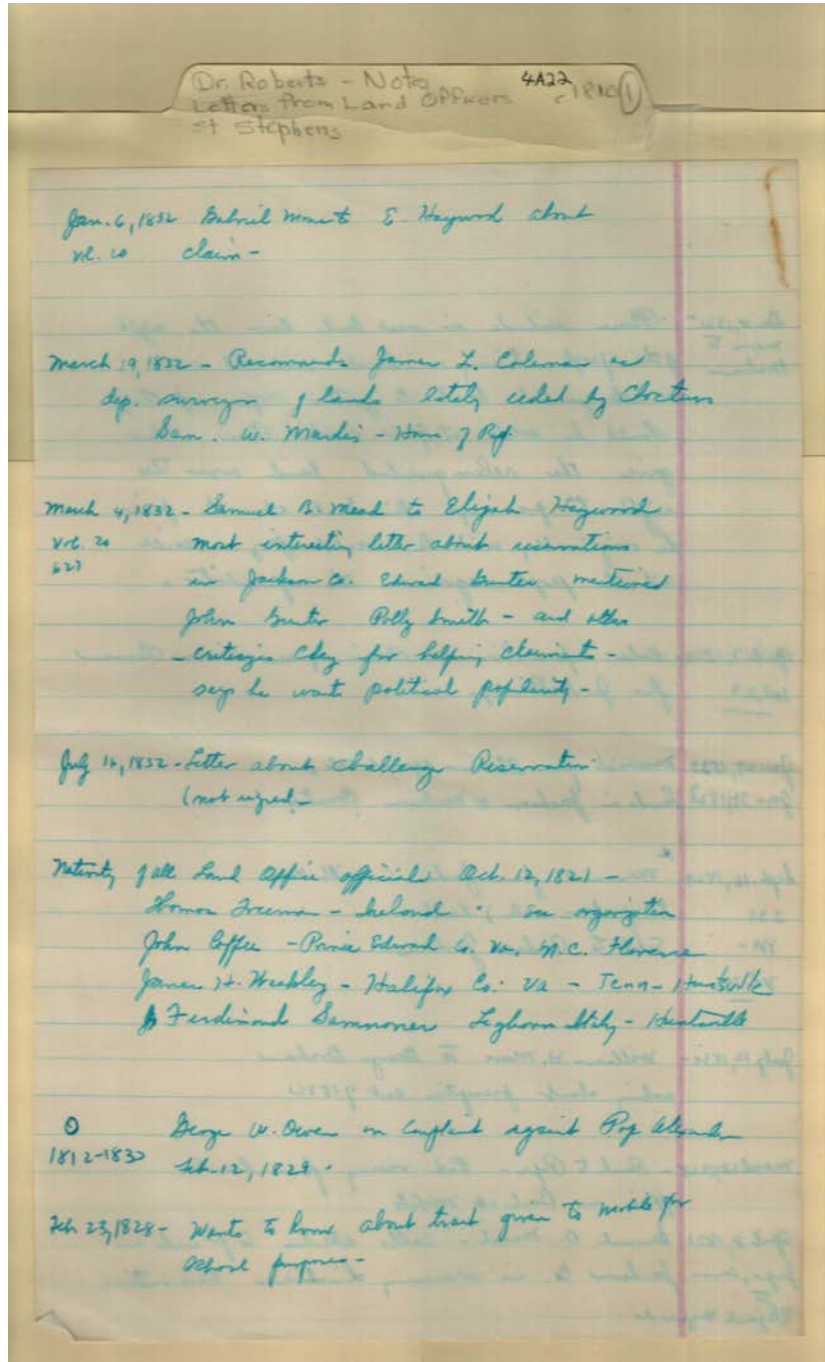 Dr. Roberts - Notes 4A22 c 1810 1
Letters from Land Officers
St Stephens
Jan. 6, 1832 Gabriel to E. Haywood about
vol. 20 claim -
March 19, 1832 - Recommends James L. Coleman as
dep. surveyor of lands lately ceded by Choctaws
Sam. W. Mardis - House of Rep.
March 4, 1832 - Samuel B. Mead to Elijah Haywood
Vol. 20 most interesting letter about reservations
627 in Jackson Co. Edward Gunter mentioned
John Gunter Polly Smith - and other
- criticizes Clay for helping claimants -
says he wants political popularity -
July 16, 1832 - Letter about challenge Reservation
(not signed -
Nativity of all Land Office officials Oct. 12, 1821 -
Freeman - Ireland - see
John Coffee - Prince Edward Co. Va. N.C. Florence
James H. Weakley - Halifax Co. Va - Tenn - Huntsville
Ferdinand Sannoner Leghorn Italy - Huntsville
O George W. Owen on Complaint against Alexander
1812-1830 Feb. 12, 1829.
Feb 23, 1828 - Wants to know about tract given to Mobile for
school purposes -